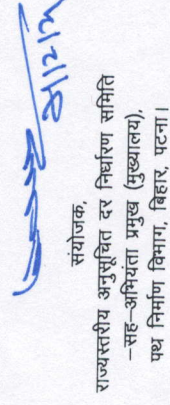 संयोजक,
राज्यस्तरीय अनुसूचित दर निर्धारण समिति
–सह–अभियंता प्रमुख (मुख्यालय),
पथ निर्माण विभाग, बिहार, पटना।